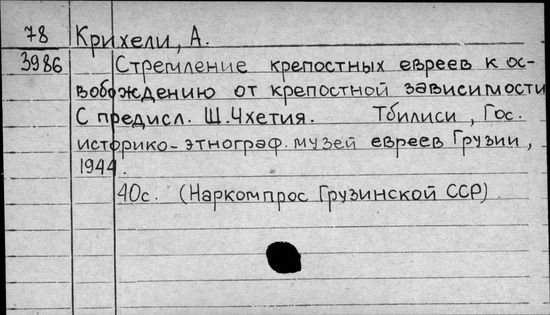 78 Крихели, А.
3986 Стремление крепостных евреев к ос-
вобождению от крепостной зависимости
С предисл. Ш. Чхетия. Тбилиси, Гос.
историко-этнограф. музей евреев Грузии,
1944.
40с. (Наркомпрос Грузинской ССР)